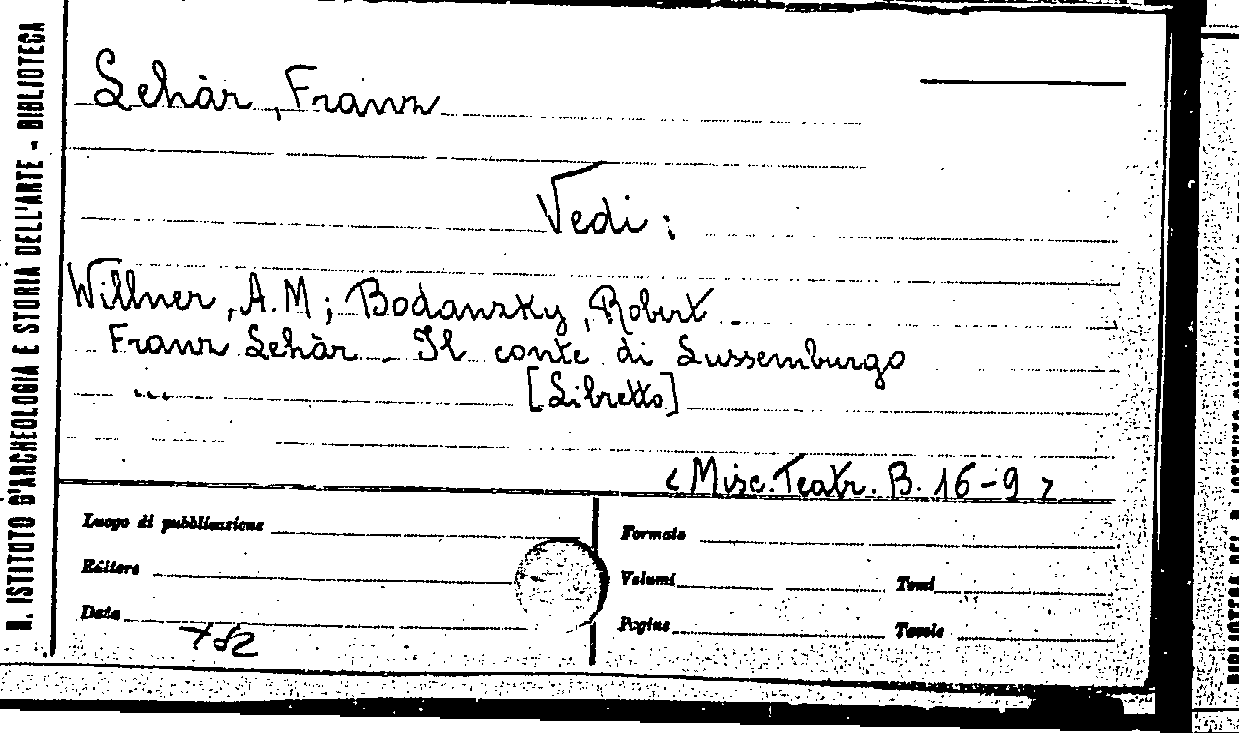 R. ISTITUTO D'ARCHEOLOGIA E STORIA DELL'ARTE - BIBLIOTECA
Lehàr, Franz
Vedi:
Willner, A.M; Bodanzky, Robert
Franz Lehàr - Il conte di Lussemburgo
...
[Libretto]
<Misc. Teatr. B. 16-9>
Luogo di pubblicazione
Formato
Editore
Volumi
Tomi
Data
Pagine
Tavole
782